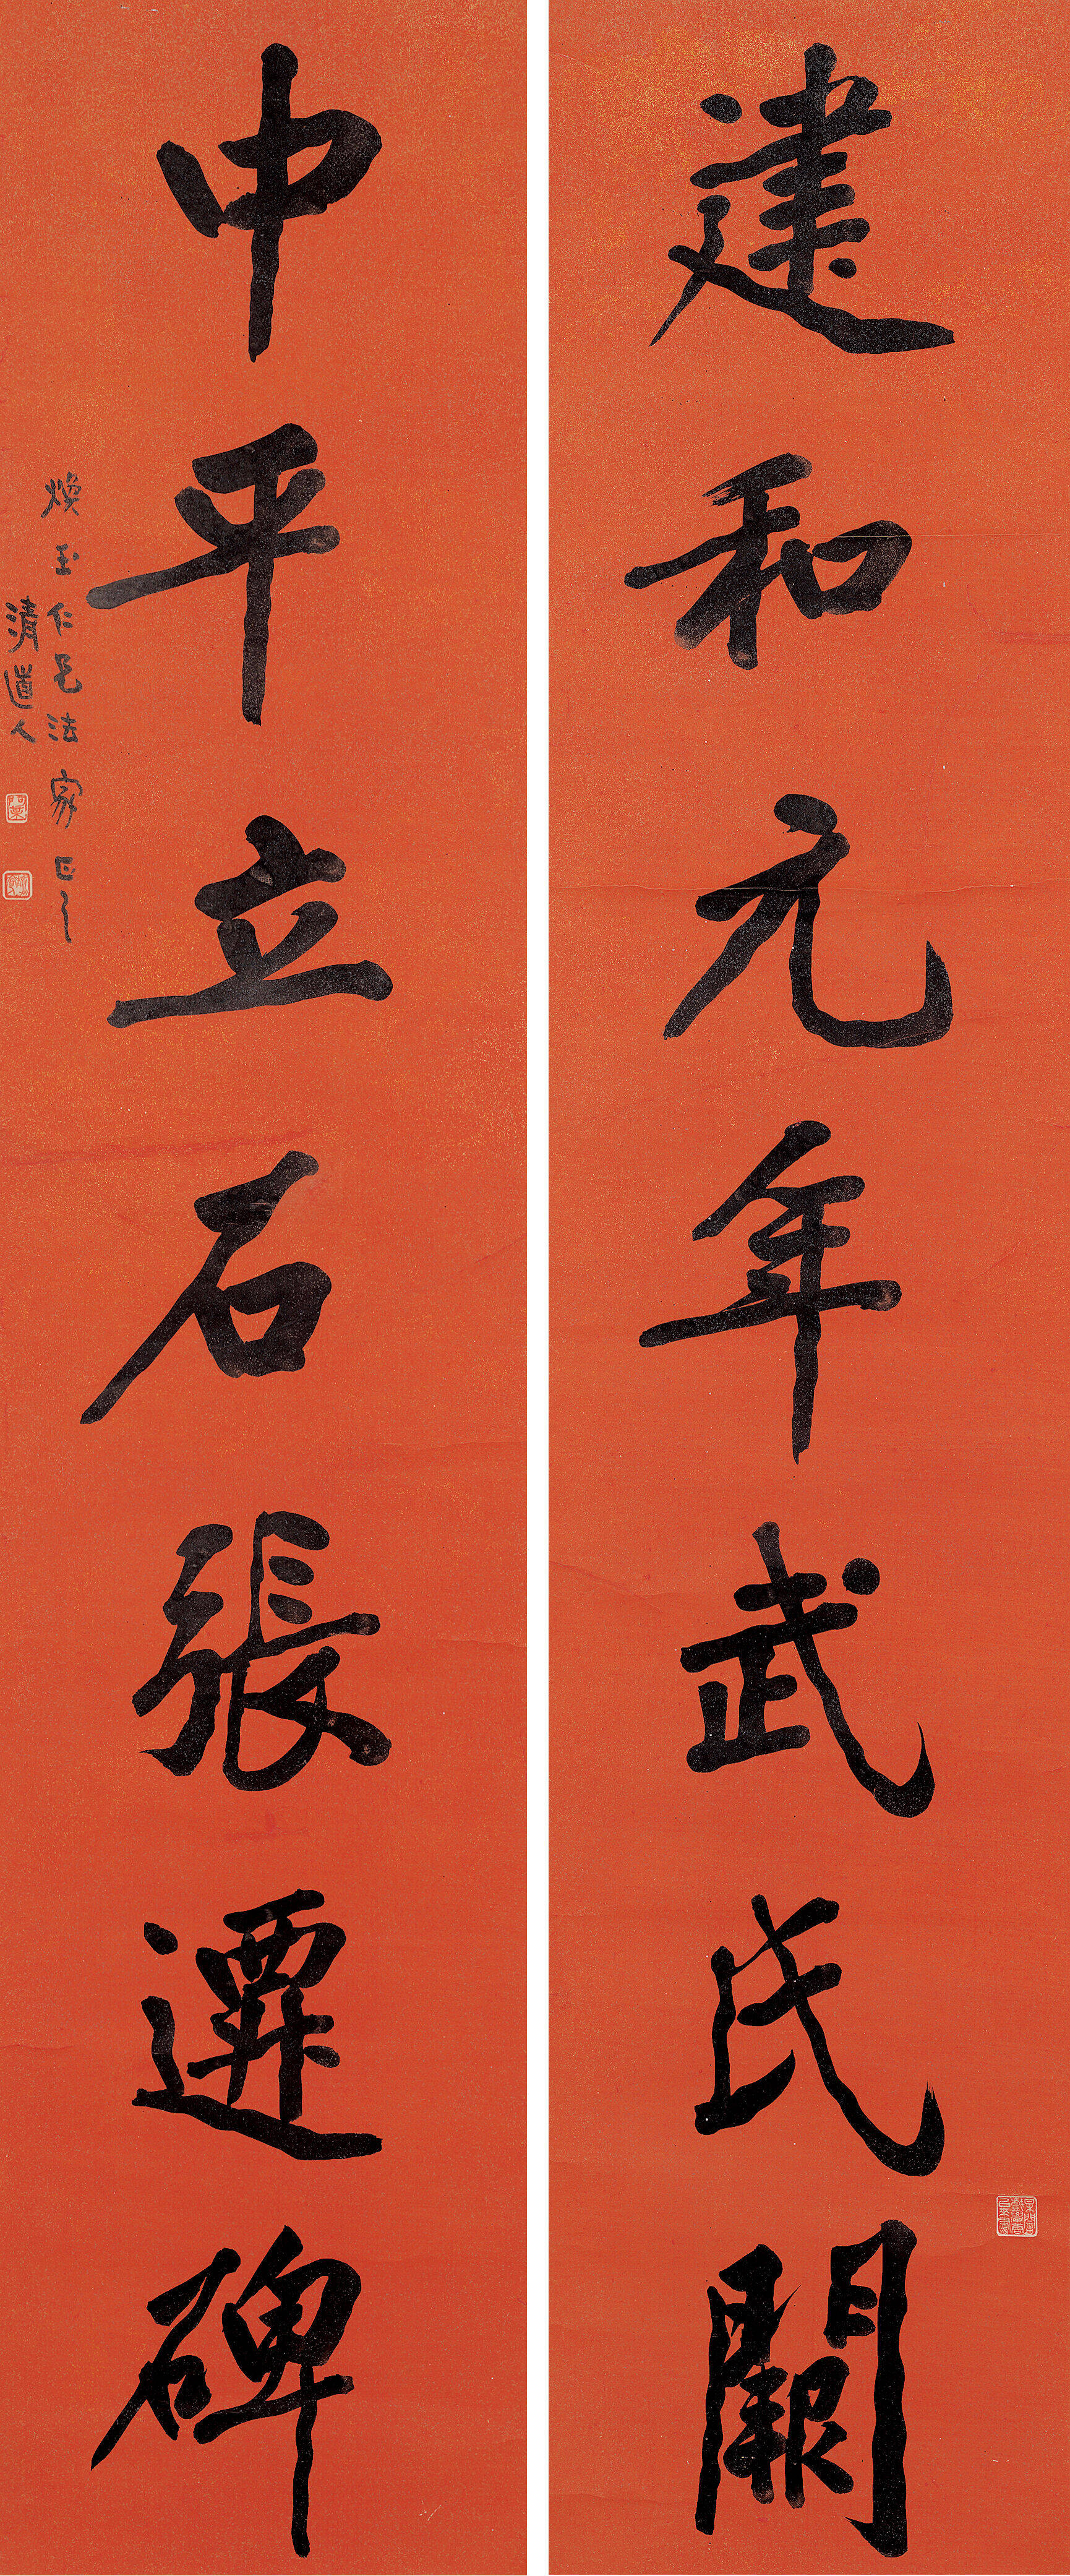 建和元年武氏闕
中平立石張遷碑
煥玉仁兄法家正之
清道人